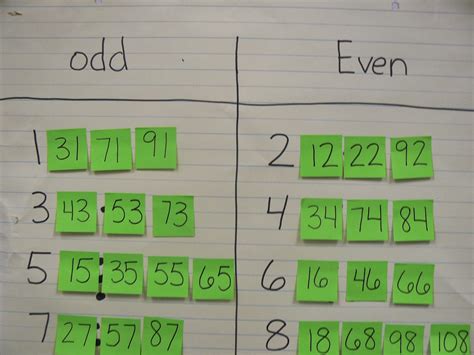 odd Even
1 31 71 91 2 12 22 92
3 43 53 73 4 34 74 84
5 15 35 55 65 6 16 46 66
7 27 57 87 8 18 68 98 108